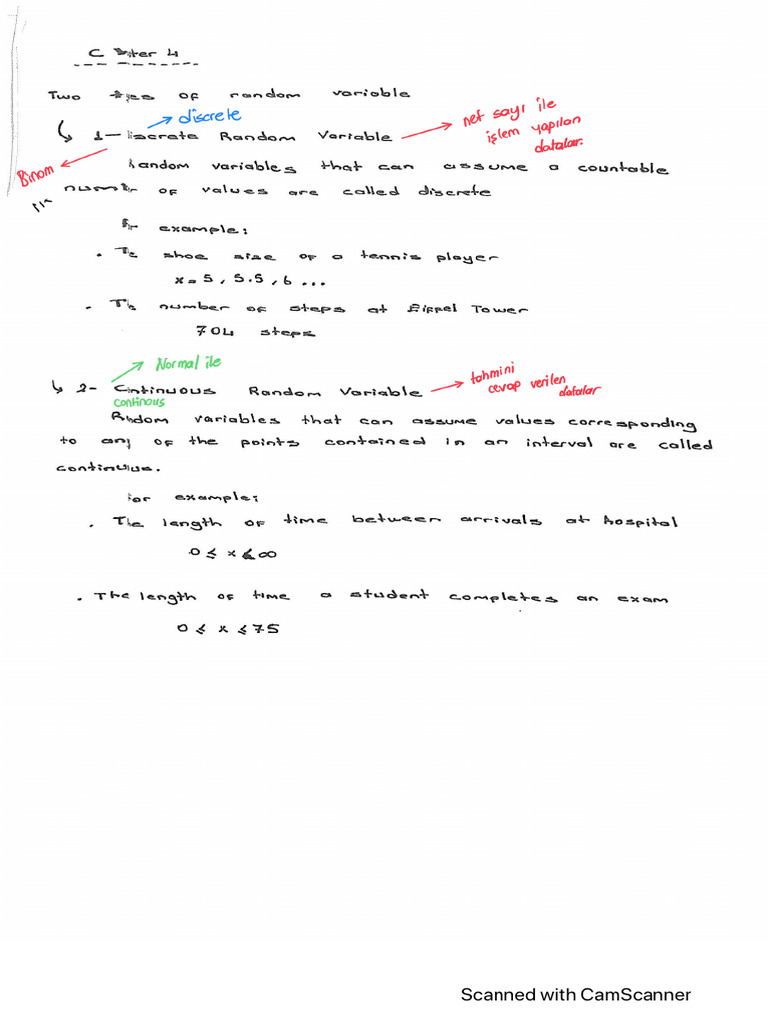 Chapter 4
Two types of random variable
discrete
1- Discrete Random Variable
net sayı ile
işlem yapılan
datalar.
Binom
Random variables that can assume a countable
number of values are called discrete
For example:
. The shoe size of a tennis player
x = 5, 5.5, 6 ...
. The number of steps at Eiffel Tower
704 steps
Normal ile
2- Continuous Random Variable
continous
tahmini
cevap verilen
datalar
Random variables that can assume values corresponding
to any of the points contained in an interval are called
continuous.
For example:
. The length of time between arrivals at hospital
0 ≤ x ≤ ∞
. The length of time a student completes an exam
0 ≤ x ≤ 75
Scanned with CamScanner